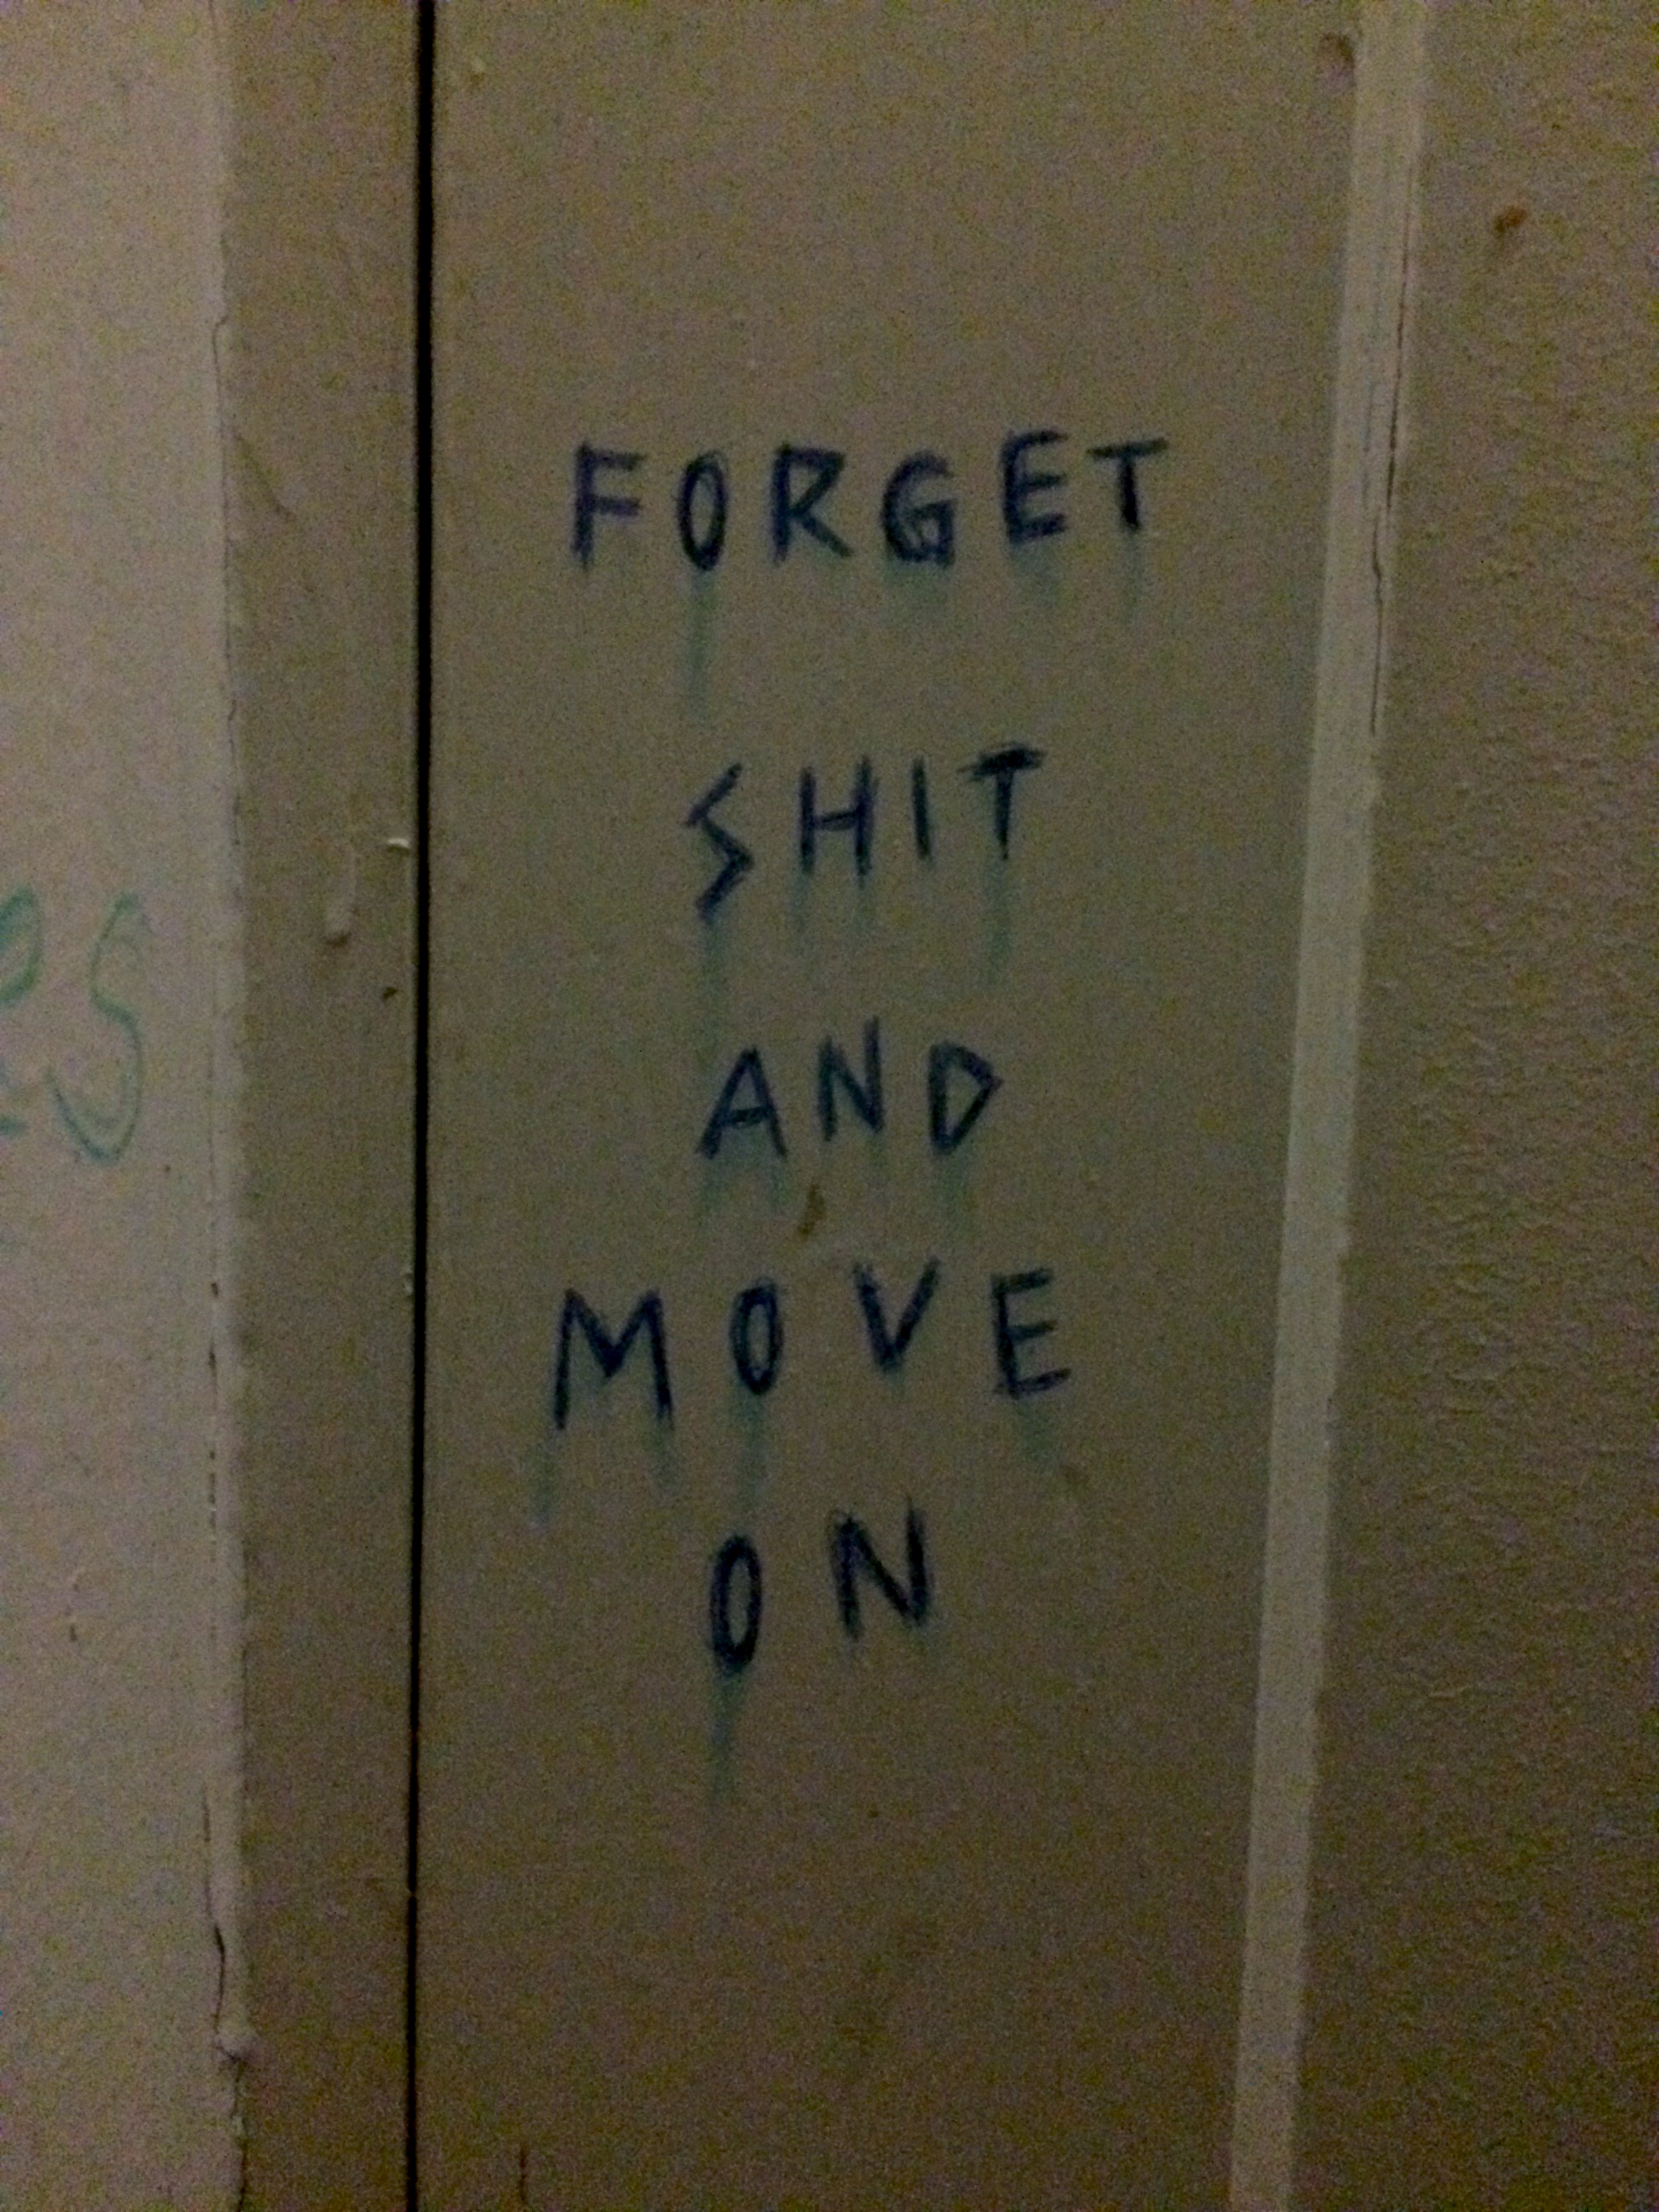 FORGET
SHIT
AND
MOVE
ON